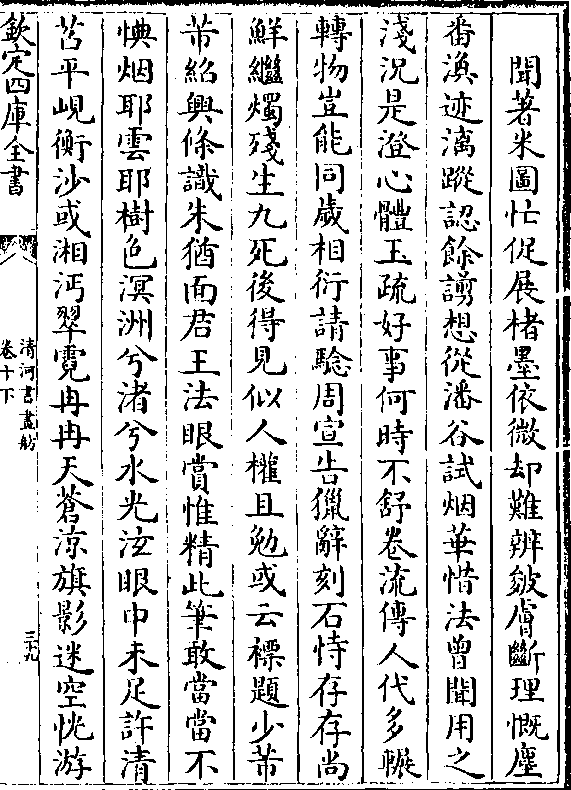 聞著米圖忙促展楮墨依微却難辨皴膚斷理慨塵
番渙迹漓蹤認餘謭想從潘谷試烟華惜法曾聞用之
淺況是澄心體玉疏好事何時不舒卷流傳人代多轆
轉物豈能同歲相衍請驗周宣告獵辭刻石恃存存尚
鮮繼燭殘生九死後得見似人權且勉或云標題少芾
芾紹興條識朱猶面君王法眼賞惟精此筆敢當當不
怏烟耶雲耶樹色溟洲兮渚兮水光泫眼中未足許清
苕平峴衡沙或湘沔翠霓冉冉天蒼涼旗影迷空恍游
欽定四庫全書
清河書畫舫
卷十下
三十九